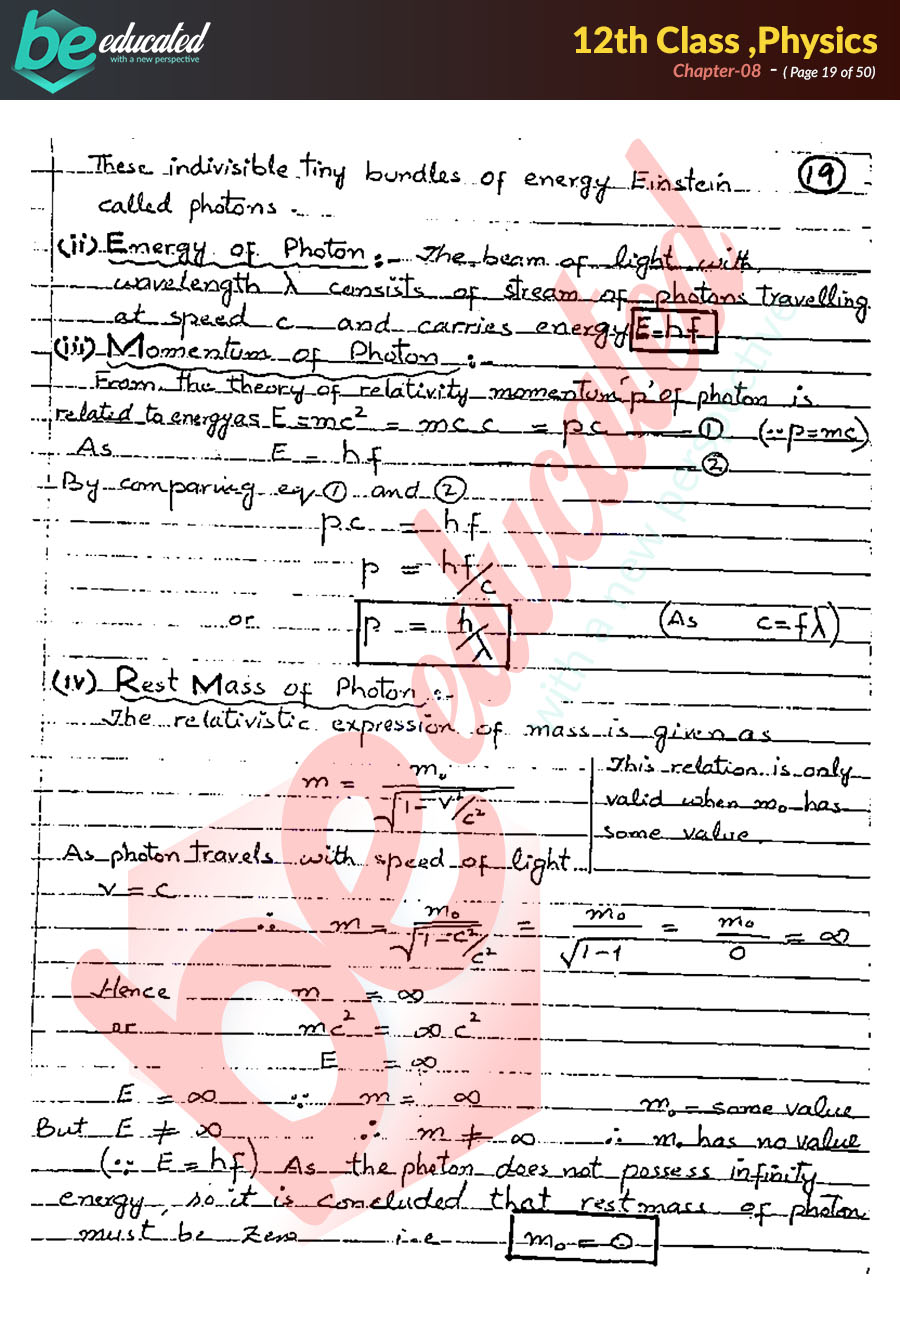 be educated
with a new perspective
12th Class ,Physics
Chapter-08 - ( Page 19 of 50)
These indivisible tiny bundles of energy Einstein
19
called photons.
(ii) Energy of Photon :- The beam of light with
wavelength λ consists of stream of photons travelling
at speed c and carries energy E=hf
(iii) Momentum of Photon :-
From the theory of relativity momentum 'p' of photon is
related to energy as E=mc² = mc c = pc ① (∵ p=mc)
As E = hf ②
By comparing eq ① and ②
pc = hf
p = hf/c
or p = h/λ (As c=fλ)
(iv) Rest Mass of Photon :-
The relativistic expression of mass is given as
m = m₀/√1-v²/c²
This relation is only
valid when m₀ has
some value.
As photon travels with speed of light
v = c
∴ m = m₀/√1-c²/c² = m₀/√1-1 = m₀/0 = ∞
Hence m = ∞
or mc² = ∞ c²
E = ∞
E = ∞ ∵ m = ∞ m₀ = some value
But E ≠ ∞ ∴ m ≠ ∞ ∴ m₀ has no value
(∵ E=hf) As the photon does not possess infinity
energy, so it is concluded that rest mass of photon
must be zero i.e m₀ = 0
be educated
with a new perspective